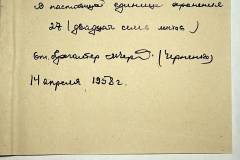 В настоящей единице хранения
27 (двадцать семь листов)
Ст. бухгалтер (Черненко)
14 апреля 1958 г.